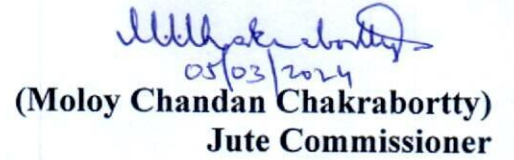 MChakrabortty
05/03/2024
(Moloy Chandan Chakrabortty)
Jute Commissioner